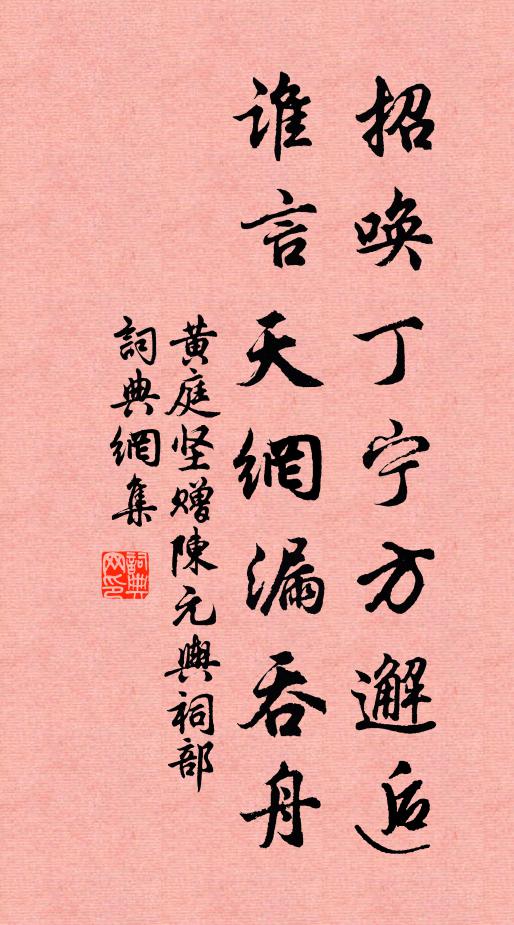 招唤丁宁方邂逅
谁言天網漏吞舟
黄庭坚赠陳元輿祠部
詞典網集
詞典网印